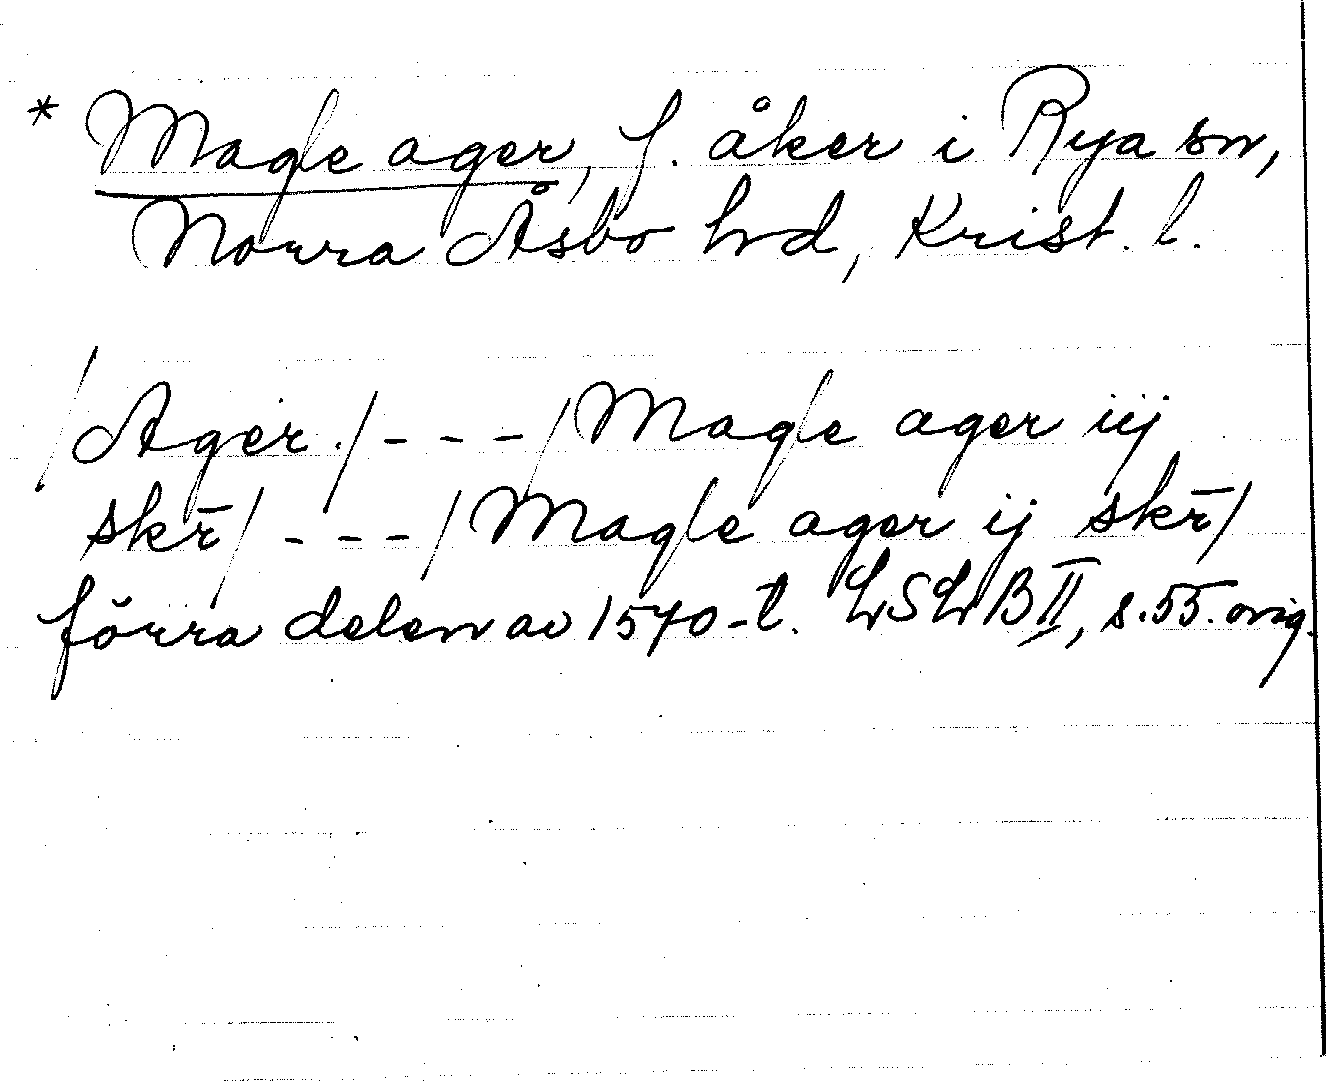 * Magle ager, f. åker i Rya sn,
Norra Åsbo hd, Krist. l.
/Ager./ - - - /Magle ager iij
skr̄/ - - - / Magle ager ij skr̄/
förra delen av 1570-t. LSLB II, s.55. orig.